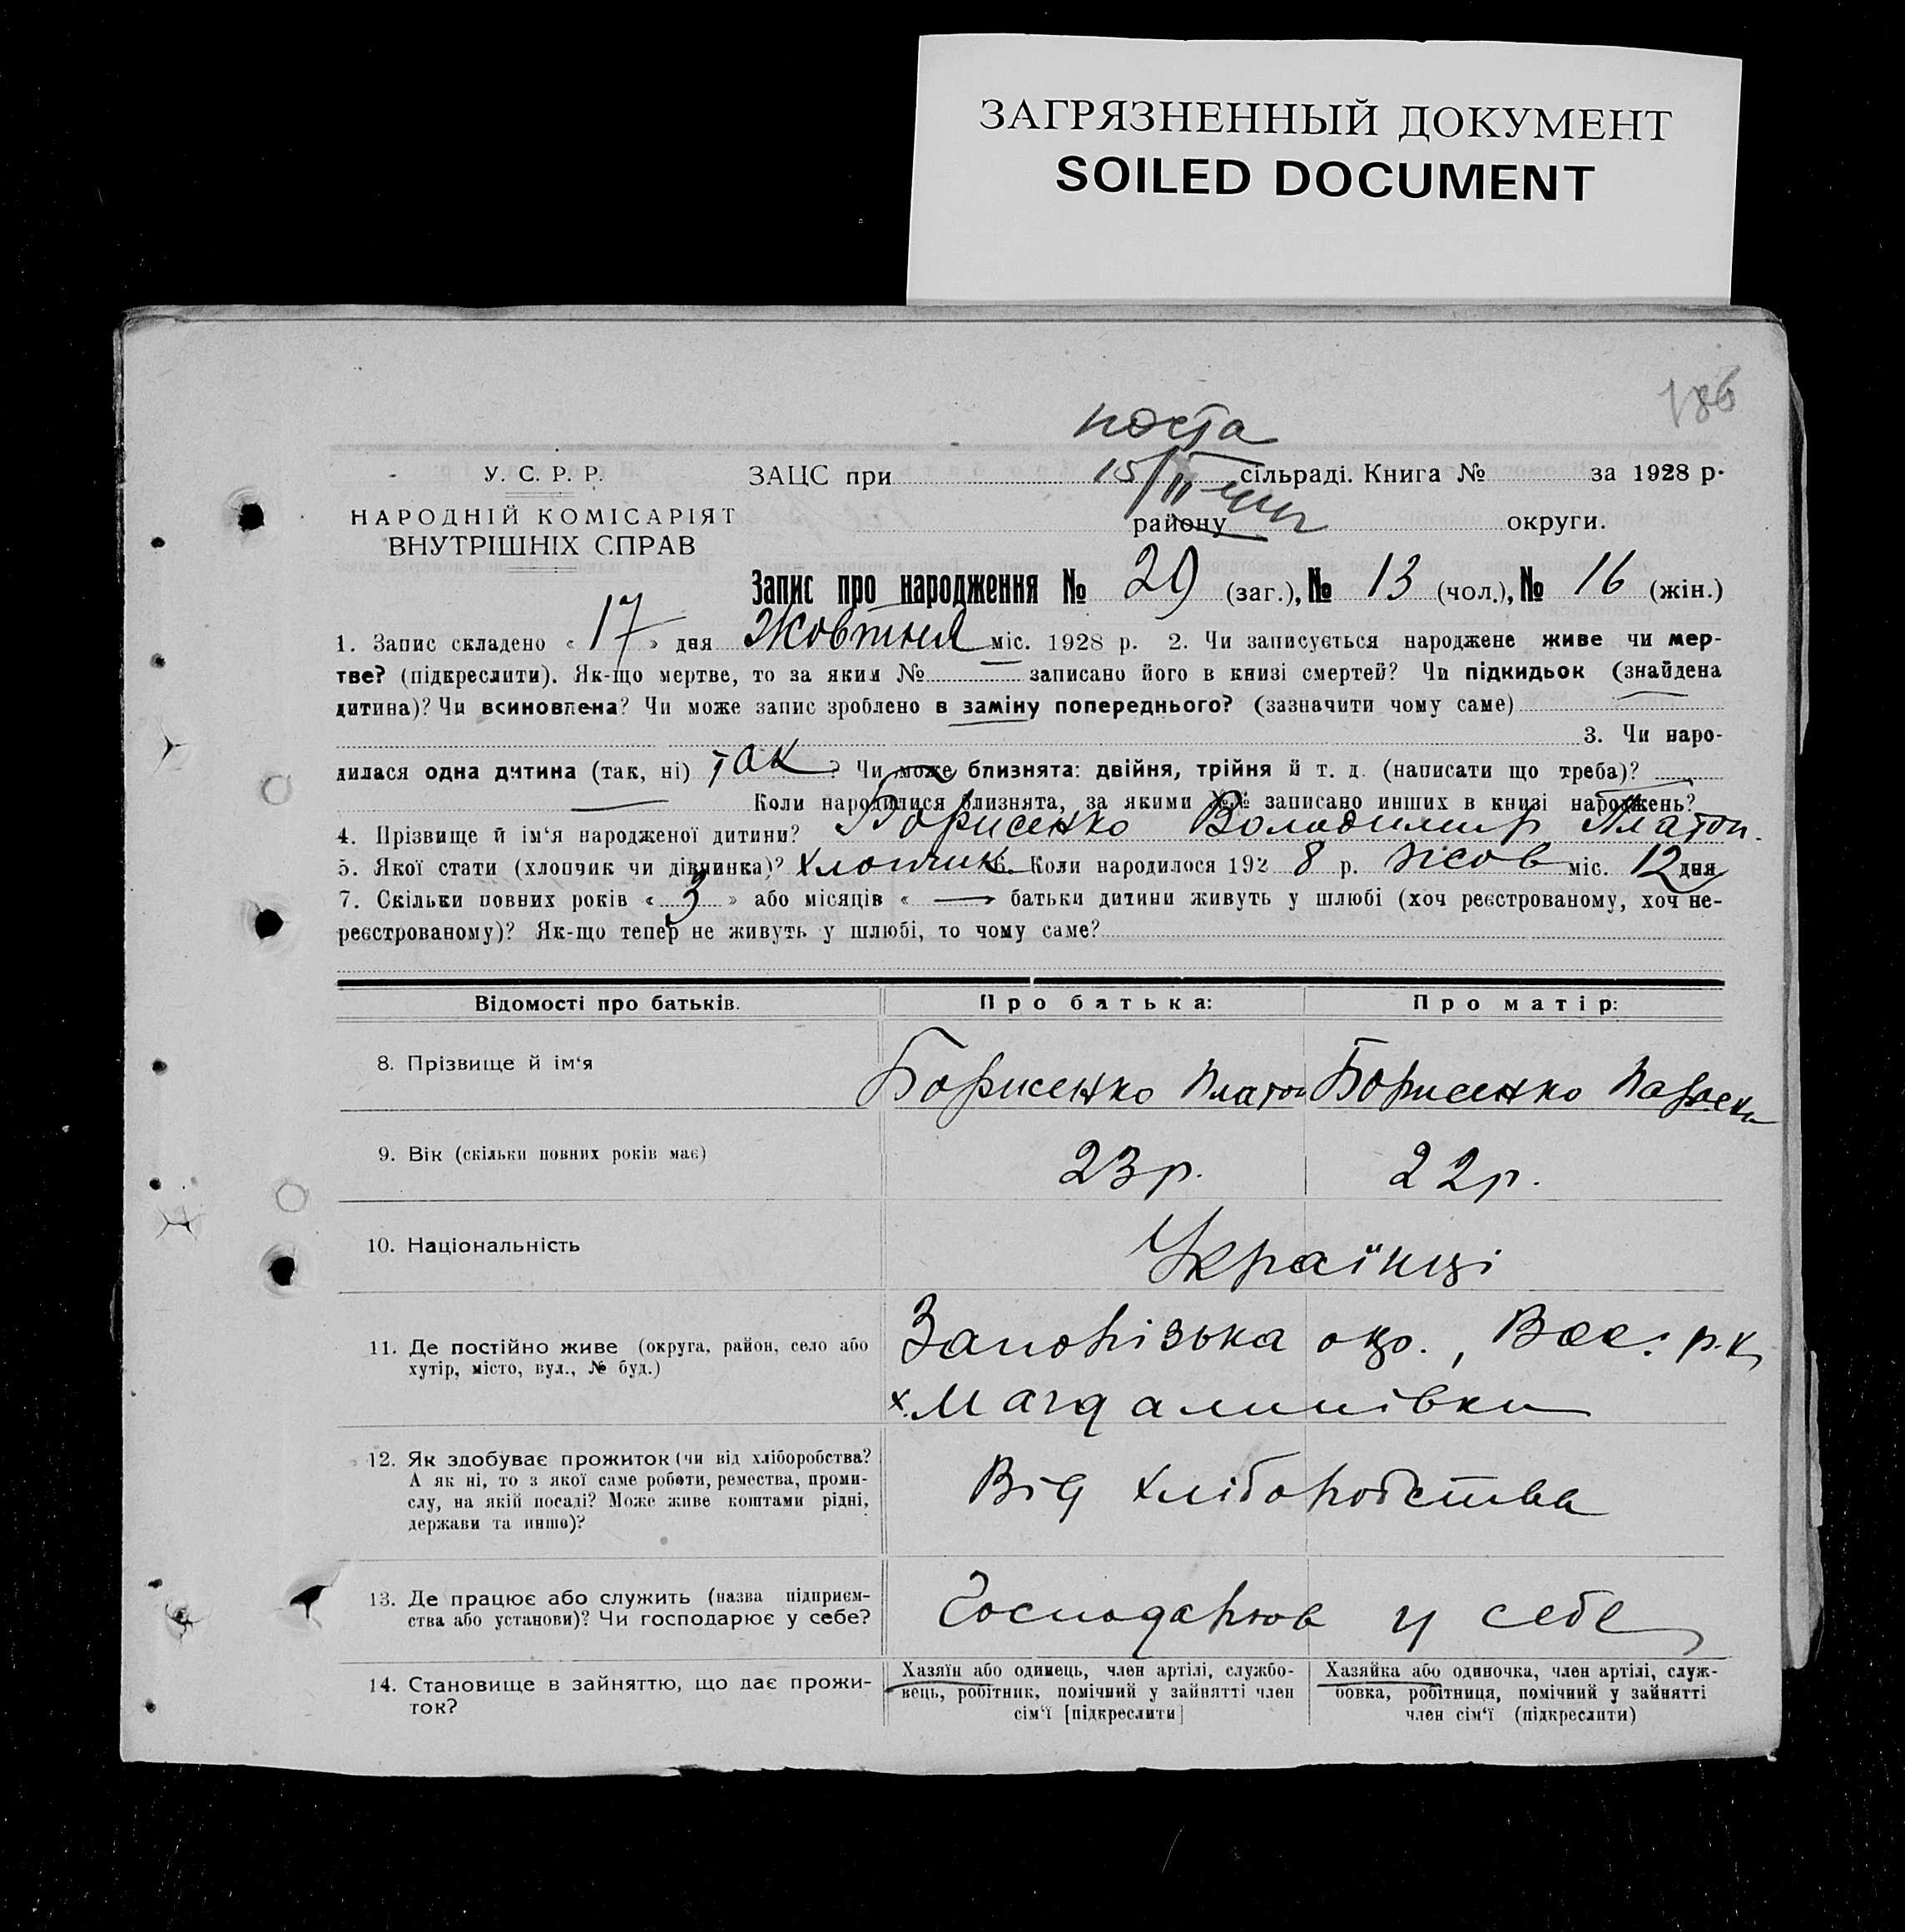 ЗАГРЯЗНЕННЫЙ ДОКУМЕНТ
SOILED DOCUMENT
186
У. С. Р. Р.
НАРОДНІЙ КОМІСАРІЯТ
ВНУТРІШНІХ СПРАВ
ЗАЦС при 15/II сільраді. Книга № за 1928 р.
району округи.
Запис про народження № 29 (заг.), № 13 (чол.), № 16 (жін.)
1. Запис складено « 17 » дня Жовтня міс. 1928 р. 2. Чи записується народжене живе чи мер-
тве? (підкреслити). Як-що мертве, то за яким № записано його в книзі смертей? Чи підкидьок (знайдена
дитина)? Чи всиновлена? Чи може запис зроблено в заміну попереднього? (зазначити чому саме)
3. Чи наро-
дилася одна дитина (так, ні) так ? Чи може близнята: двійня, трійня й т. д. (написати що треба)?
Коли народилися близнята, за якими №№ записано инших в книзі народжень?
4. Прізвище й ім‘я народженої дитини? Борисенко Володимир Платон.
5. Якої стати (хлопчик чи дівчинка)? хлопчик 6. Коли народилося 192 8 р. Жов міс. 12 дня
7. Скільки повних років « 3 » або місяців « — батьки дитини живуть у шлюбі (хоч реєстрованому, хоч не-
реєстрованому)? Як-що тепер не живуть у шлюбі, то чому саме?
Відомості про батьків.
Про батька:
Про матір:
8. Прізвище й ім‘я
Борисенко Платон
Борисенко Параски
9. Вік (скільки повних років має)
23 р.
22 р.
10. Національність
Українці
11. Де постійно живе (округа, район, село або
хутір, місто, вул., № буд.)
Запорізька окр., Вас. р.к,
х. Магдалинівки
12. Як здобуває прожиток (чи від хліборобства?
А як ні, то з якої саме роботи, ремества, проми-
слу, на якій посаді? Може живе коштами рідні,
держави та инше)?
Від хліборобства
13. Де працює або служить (назва підприєм-
ства або установи)? Чи господарює у себе?
Господарюв у себе
14. Становище в зайняттю, що дає прожи-
ток?
Хазяїн або одинець, член артілі, службо-
вець, робітник, помічний у зайнятті член
сім‘ї [підкреслити]
Хазяйка або одиночка, член артілі, служ-
бовка, робітниця, помічний у зайнятті
член сім‘ї (підкреслити)